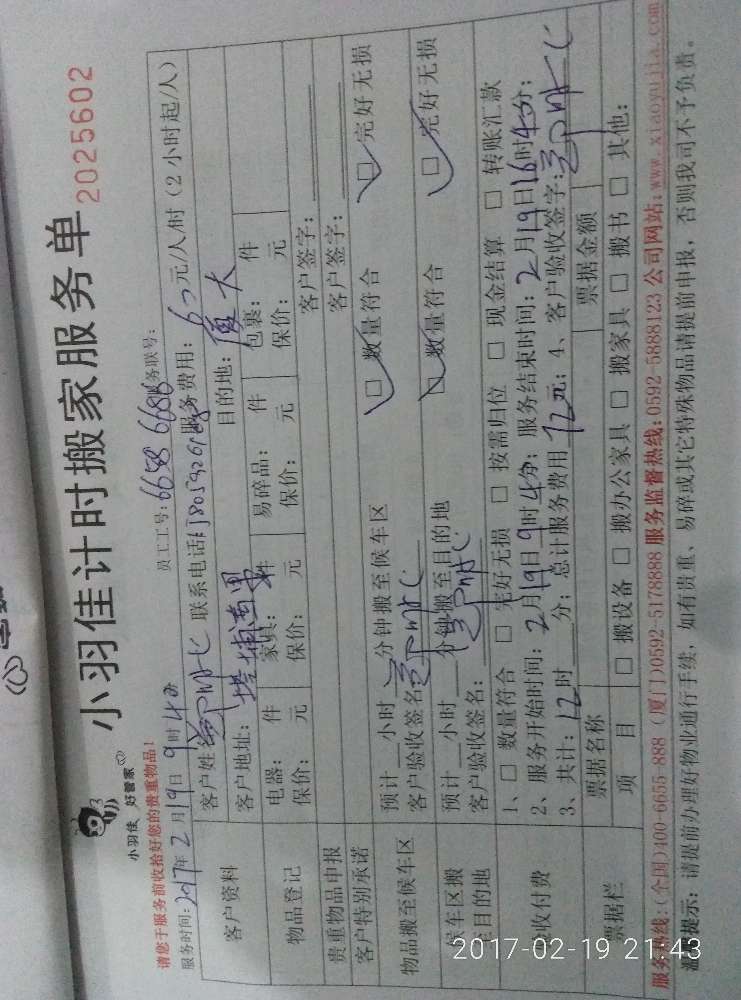 小羽佳计时搬家服务单
2025602
小羽佳 好管家
请您于服务前收拾好您的贵重物品!
员工工号: 6658 6686 服务联号:
服务时间: 2017年2月19日9时4分
客户资料
客户姓名 联系电话 服务费用: 60元/人/时(2小时起/人)
客户地址: 塔埔南里 目的地: 厦大
物品登记
电器: 件 家具: 件 易碎品: 件 包裹: 件
保价: 元 保价: 元 保价: 元 保价: 元
贵重物品申报 客户签字:
客户特别承诺 客户签字:
物品搬至候车区
预计 小时 分钟搬至候车区 □ 数量符合 □ 完好无损
客户验收签名:
候车区搬至目的地
预计 小时 分钟搬至目的地 □ 数量符合 □ 完好无损
客户验收签名:
验收付费
1、□ 数量符合 □ 完好无损 □ 按需归位 □ 现金结算 □ 转账汇款
2、服务开始时间: 2月19日9时4分; 服务结束时间: 2月19日16时4分;
3、共计: 12时 分; 总计服务费用 元; 4、客户验收签字:
票据栏
票据名称 票据金额
项目 □ 搬设备 □ 搬办公家具 □ 搬家具 □ 搬书 □ 其他:
服务热线:(全国)400-6655-888 (厦门)0592-5178888 服务监督热线:0592-5888123 公司网站:www.xiaoyujia.com
温馨提示: 请提前办理好物业通行手续, 如有贵重、易碎或其它特殊物品请提前申报, 否则我司不予负责。
2017-02-19 21:43